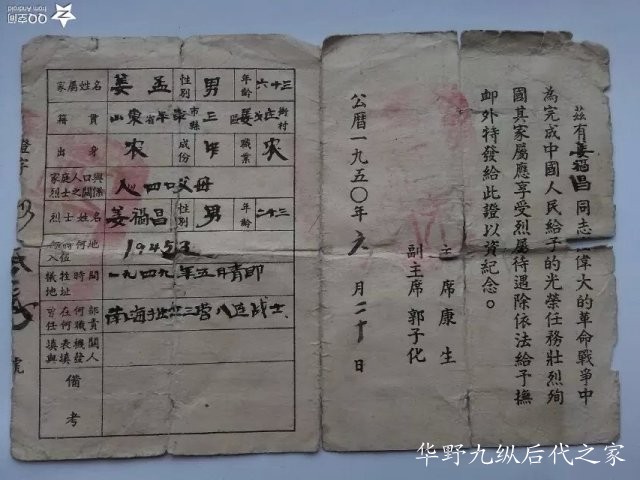 QQ空间
from Android
兹有姜福昌同志在偉大的革命戰爭中
為完成中國人民給予的光榮任務壯烈殉
國其家屬應享受烈屬待遇除依法給予撫
卹外特發給此證以資紀念。
主席康生
副主席郭子化
公曆一九五〇年六月二十日
家屬姓名 姜孟 性別 男 年齡 六十三
籍貫 山東省 市縣 三區 姜 莊 街村
出身 农 成份 中 職業 农
家庭人口與烈士之關係 人四口父母
烈士姓名 姜福昌 性別 男 年齡 二十三
何時何地入伍 1945
犧牲時間地址 一九四九年五月青即
在何部任何職責 南海独 三营八连战士
填表機關與填發人
備考
證字
號
华野九纵后代之家